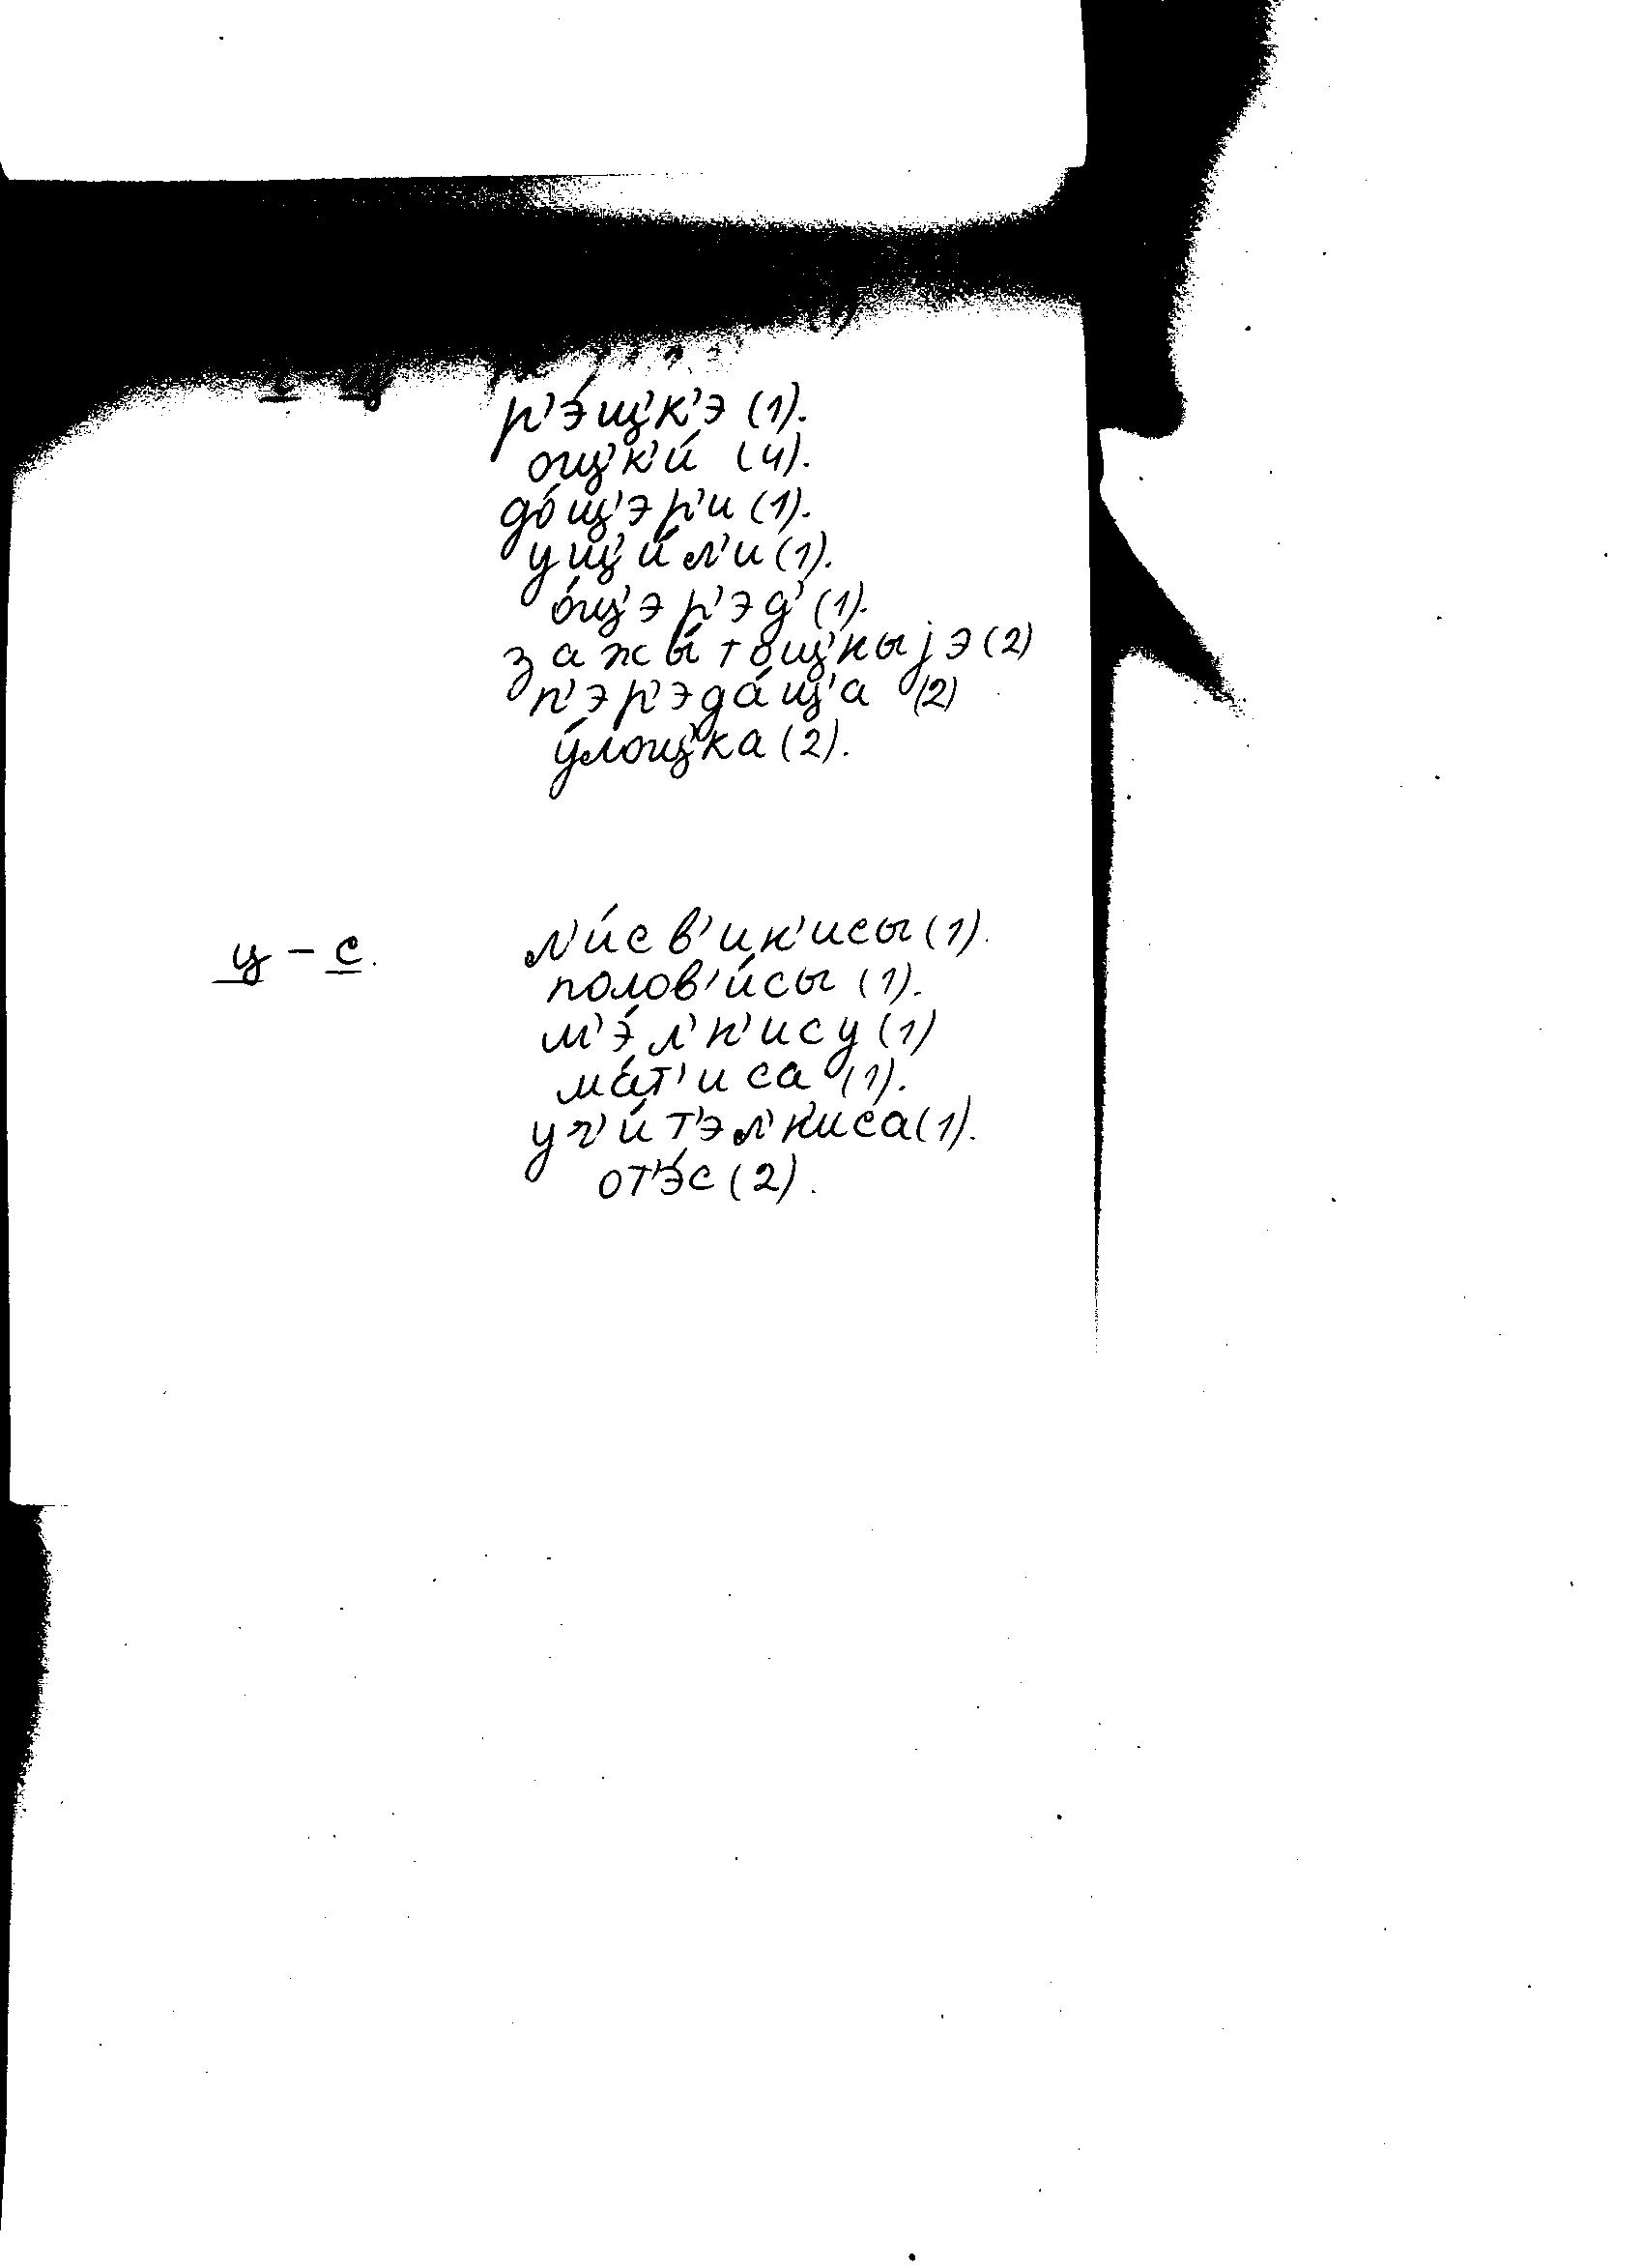 р'э́щ'к'э (1).
ощ'к'и́ (4).
до́щ'э р'и (1).
ущ'и́л'и (1).
о́щ'э р'эд' (1).
зажы́тощ'ныjэ (2)
п'эр'эда́щ'а (2)
у́лощ'ка (2).
ц – с. л'и́св'ин'исы (1).
полов'и́сы (1).
м'э́л'н'ису (1)
ма́т'иса (1).
уч'и́т'эл'н'иса (1).
от'э́с (2).